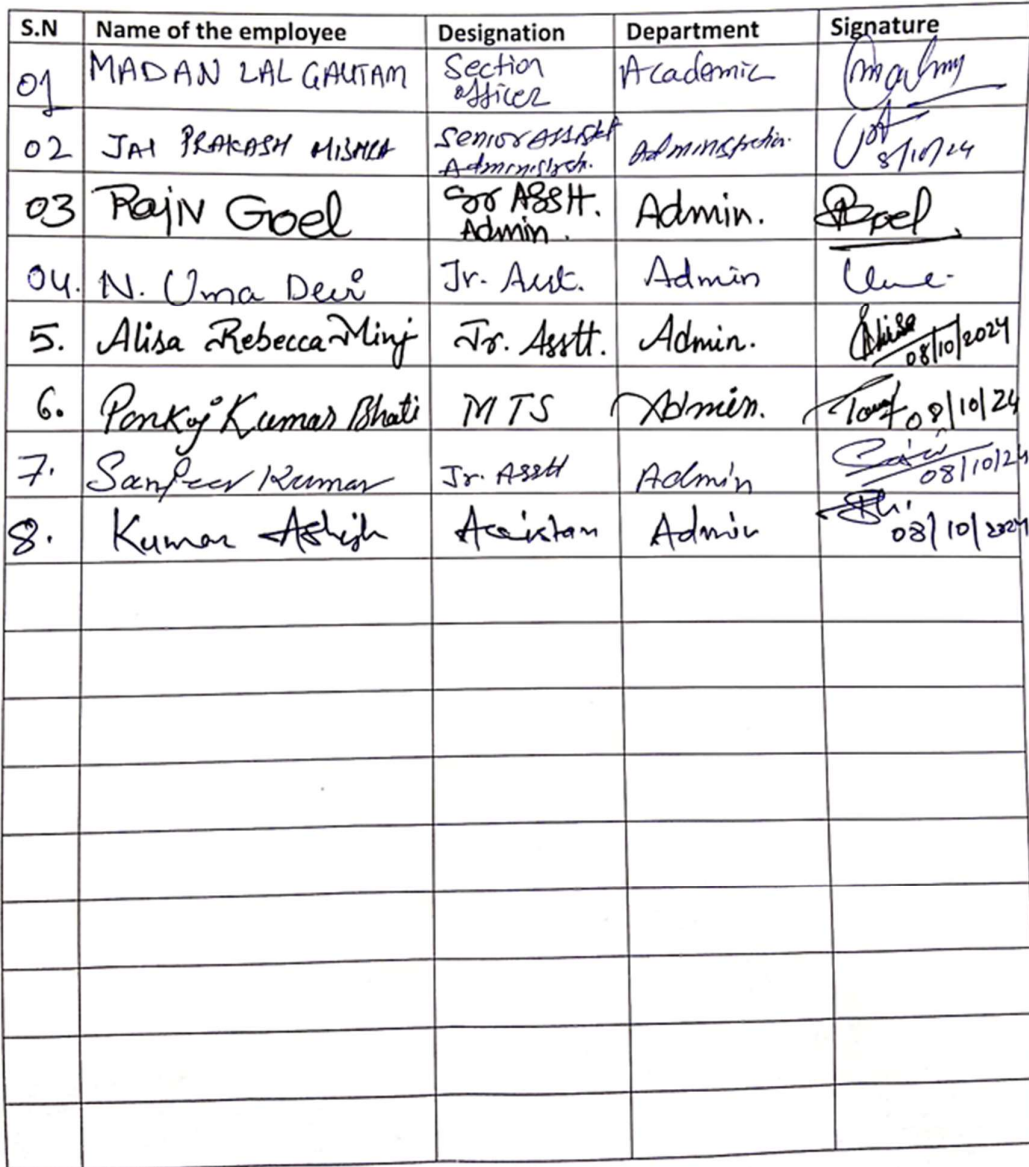 S.N Name of the employee Designation Department Signature
01 MADAN LAL GAUTAM Section officer Academic
02 JAI PRAKASH MISHRA Senior Assistt Administrn. Administration. 8/10/24
03 Rajiv Goel Sr Asstt. Admin. Admin. Goel
04. N. Uma Devi Jr. Asst. Admin Uma
5. Alisa Rebecca Minj Jr. Asstt. Admin. Alisa 08/10/2024
6. Pankaj Kumar Bhati MTS Admin. 08/10/24
7. Sanjeev Kumar Jr. Asstt Admin 08/10/24
8. Kumar Ashish Assistan Admin 08/10/2024